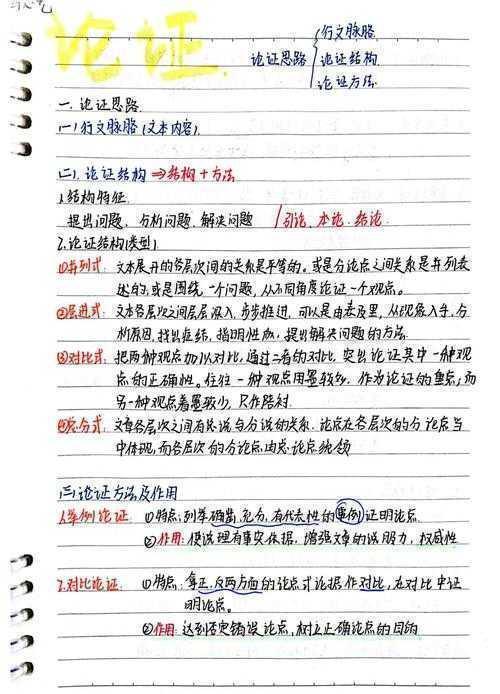 论证
论证思路
行文脉胳
论证结构
论证方法
一. 论证思路
(一) 行文脉胳 (文本内容).
(二). 论证结构 ⇒ 结构 + 方法
1. 结构特征
提出问题, 分析问题. 解决问题 / 引论, 本论. 结论.
2. 论证结构(类型)
①并列式: 文本展开的各层次间的关系是平等的。或是分论点之间关系是并列表
述的; 或是围绕一个问题, 从不同角度论证一个观点。
②层进式: 文本各层次之间层层深入, 步步推进, 可以是由表及里, 从现象入手, 分
析原因, 找出症结, 指明性质, 提出解决问题的方法.
③对比式: 把两种观点加以对比, 通过二者的对比, 突出论证其中一种观
点的正确性。往往一种观点用墨较多, 作为论证的重点; 而
另一种观点着墨较少, 只作陪衬.
④总分式: 文章各层次之间有总说与分说的关系. 论点在各层次的分论点当
中体现, 而各层次的分论点由总论点统领
(三) 论证方法及作用
1. 举例论证: ①特点: 列举确凿, 充分, 有代表性的事例证明论点.
②作用: 使说理有事实依据, 增强文章的说服力, 权威性
2. 对比论证: ①特点: 拿正, 反两方面的论点或论据作对比, 在对比中证
明论点。
②作用: 达到否定错误论点, 树立正确论点的目的